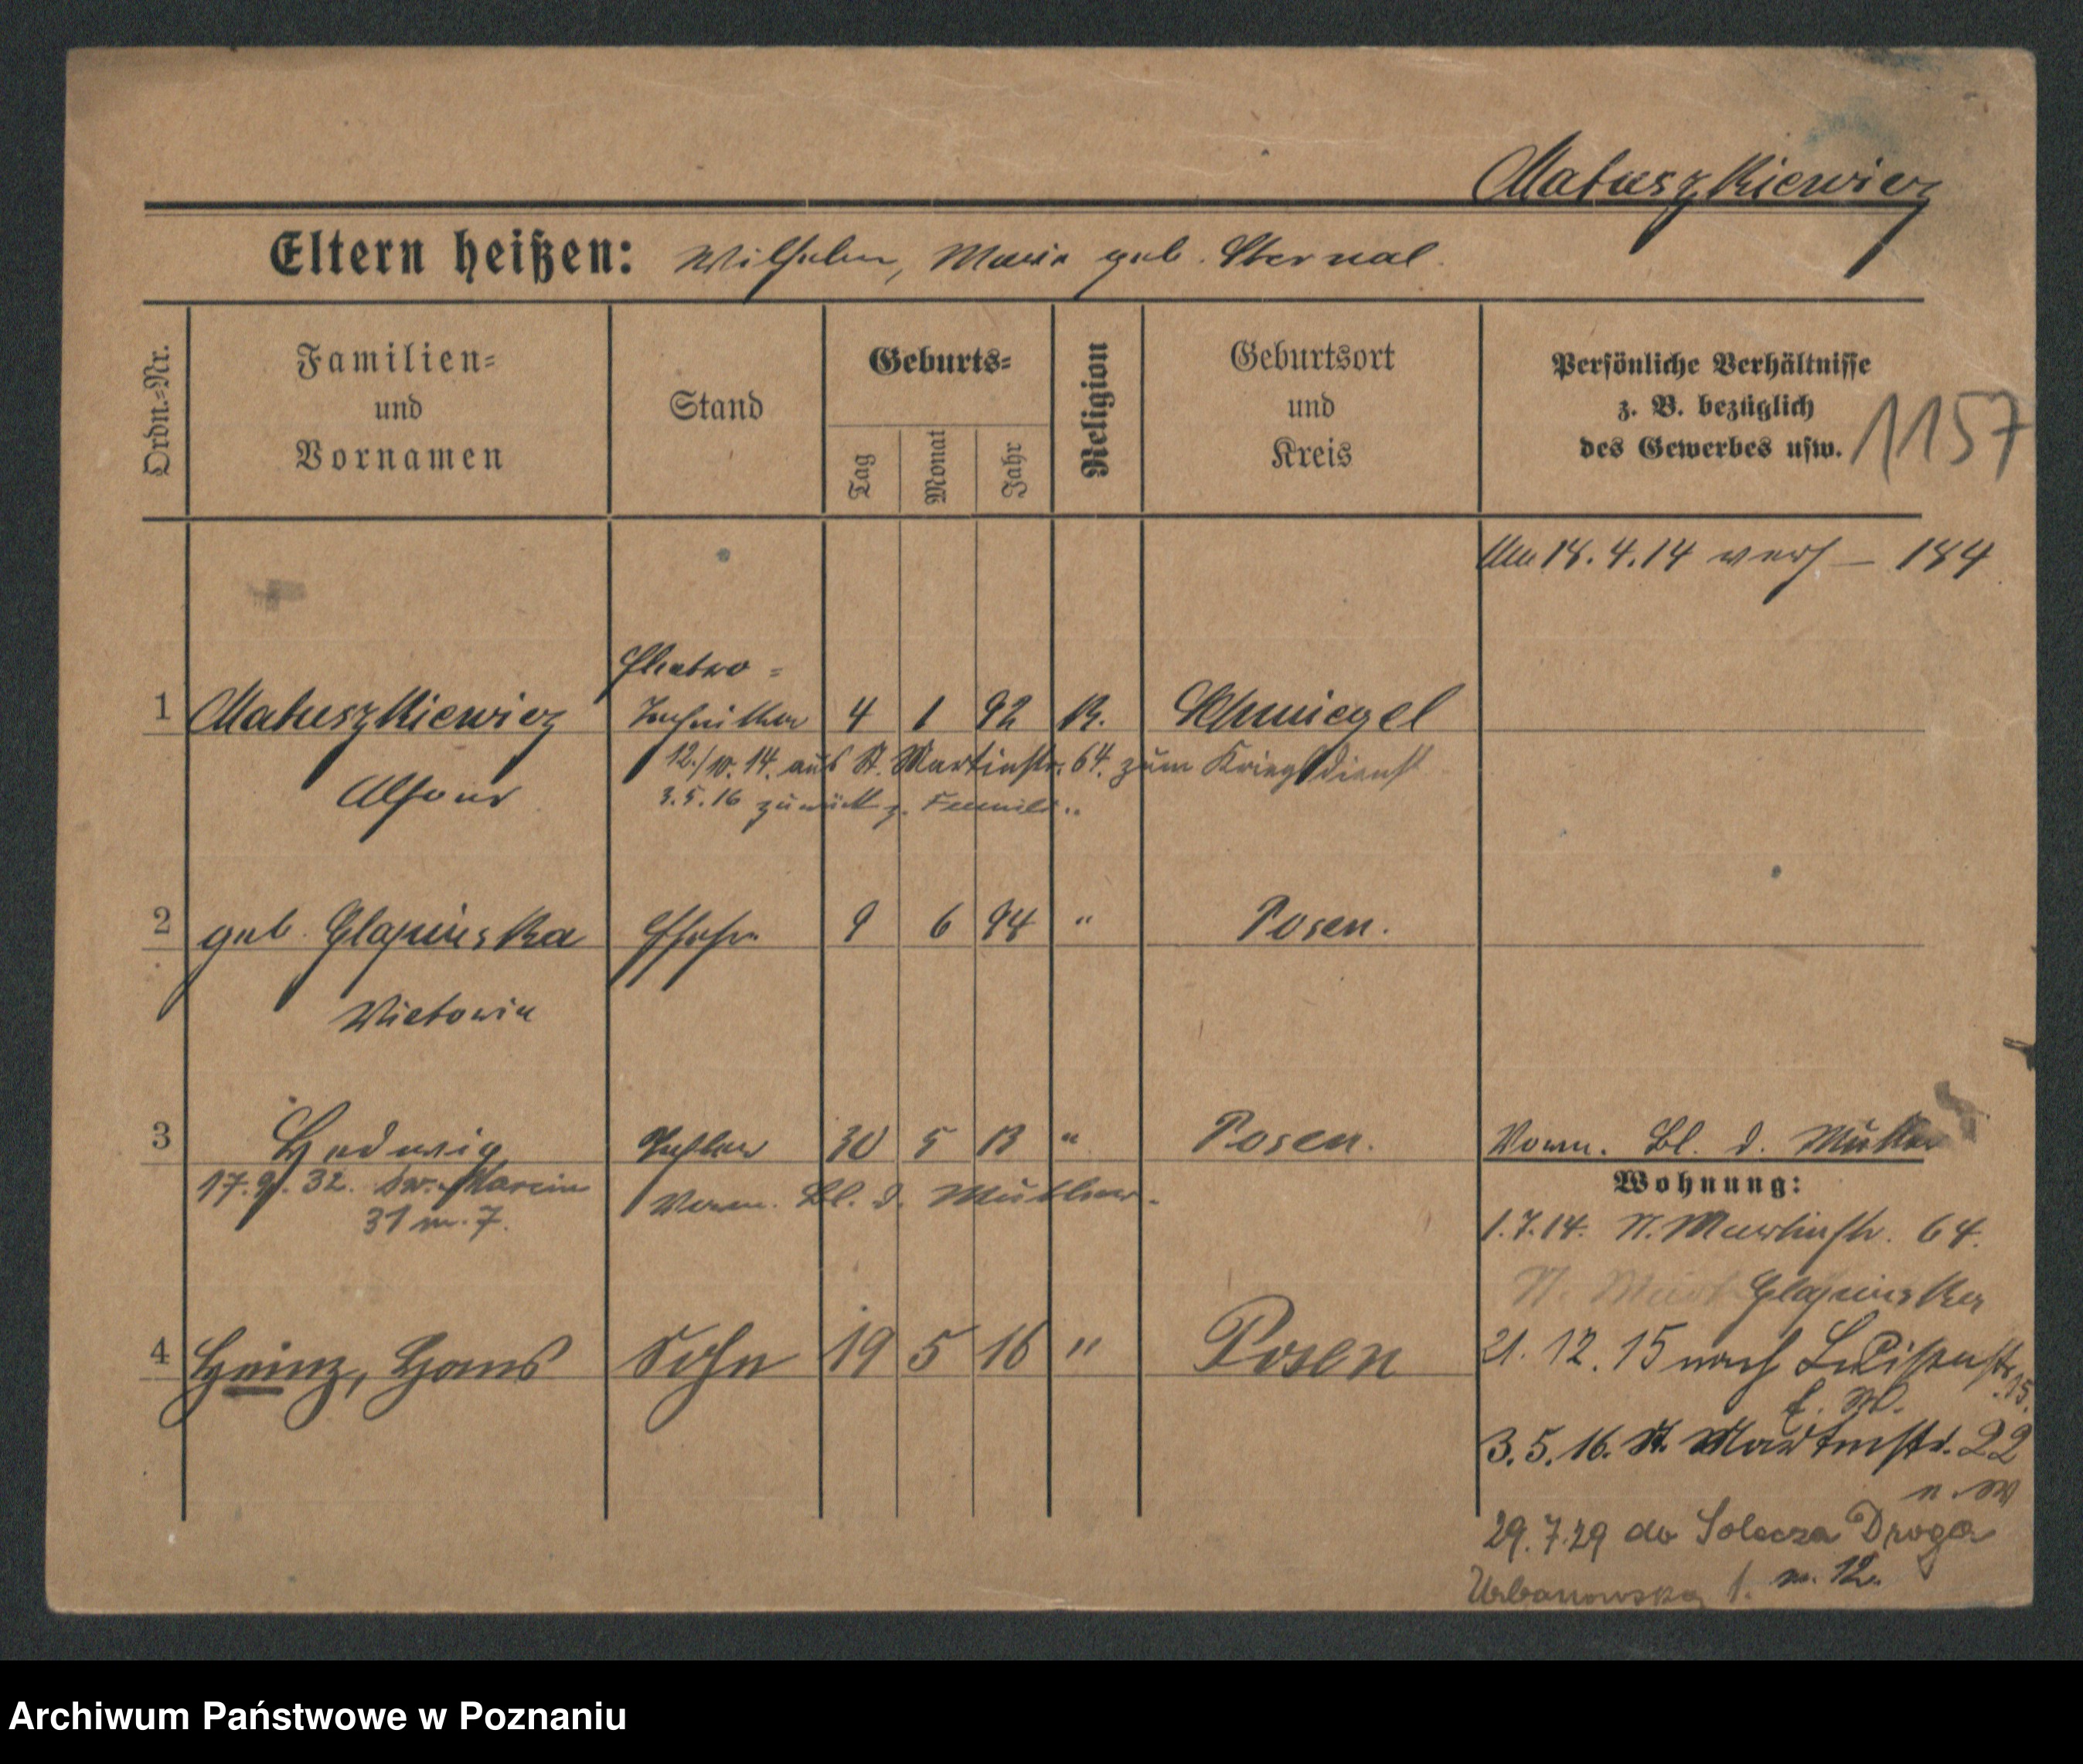 Matuszkiewicz
Eltern heißen: Wilhelm, Maria geb. Sternal.
Ordn.-Nr.
Familien-
und
Vornamen
Stand
Geburts-
Tag
Monat
Jahr
Religion
Geburtsort
und
Kreis
Persönliche Verhältnisse
z. B. bezüglich
des Gewerbes usw.
1157
18.4.14 verh — 184
Elektro-
1 Matuszkiewicz Techniker 4 1 92 K. Schmiegel
12./10.14. aus St. Martinstr. 64. zum Kriegsdienst
Alfons
3.5.16 zurück z. Familie
2 geb. Glapinska Ehefr. 9 6 94 " Posen.
Victoria
3 Hedwig Tochter 30 5 13 " Posen. Vorm. Bl. d. Mutter
17.9.32. św. Marcin
31 m. 7.
Vorm. Bl. d. Mutter.
Wohnung:
1.7.14. St. Martinstr. 64.
Glapinska
4 Heinz, Hans Sohn 19 5 16 " Posen
21.12.15 nach Luisenstr. 15.
3.5.16. St. Martinstr. 22
29.7.29 do Solacza Droga
Urbanowska 1. m. 12.
Archiwum Państwowe w Poznaniu